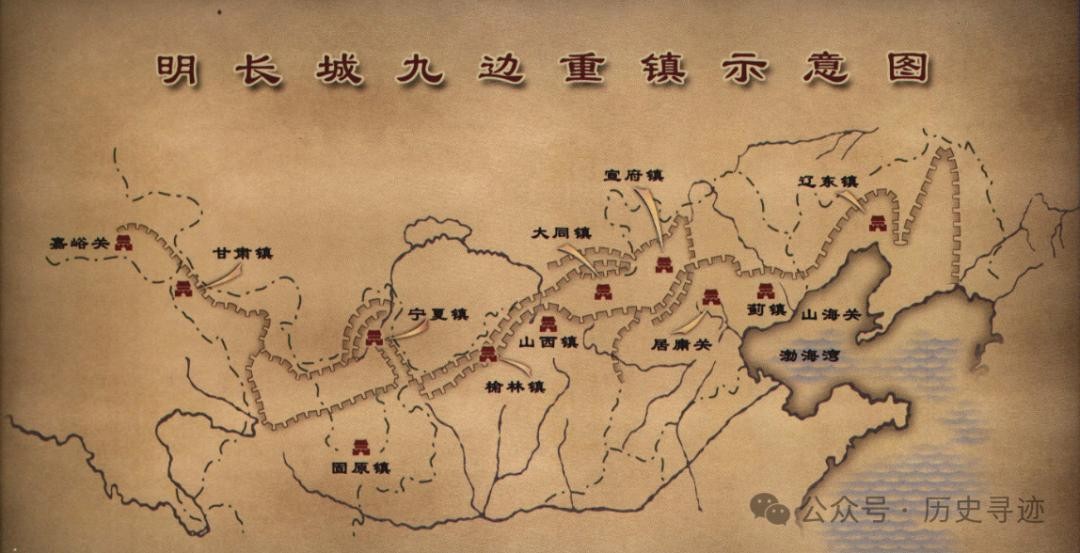 明长城九边重镇示意图
宣府镇
辽东镇
大同镇
嘉峪关
甘肃镇
宁夏镇
蓟镇
山海关
山西镇
居庸关
渤海湾
榆林镇
固原镇
公众号·历史寻迹